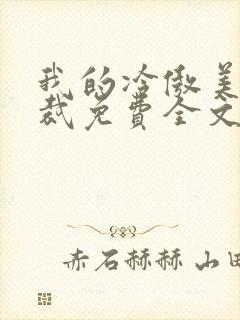 我的冷傲美
裁免费全文
赤石赫赫 山田